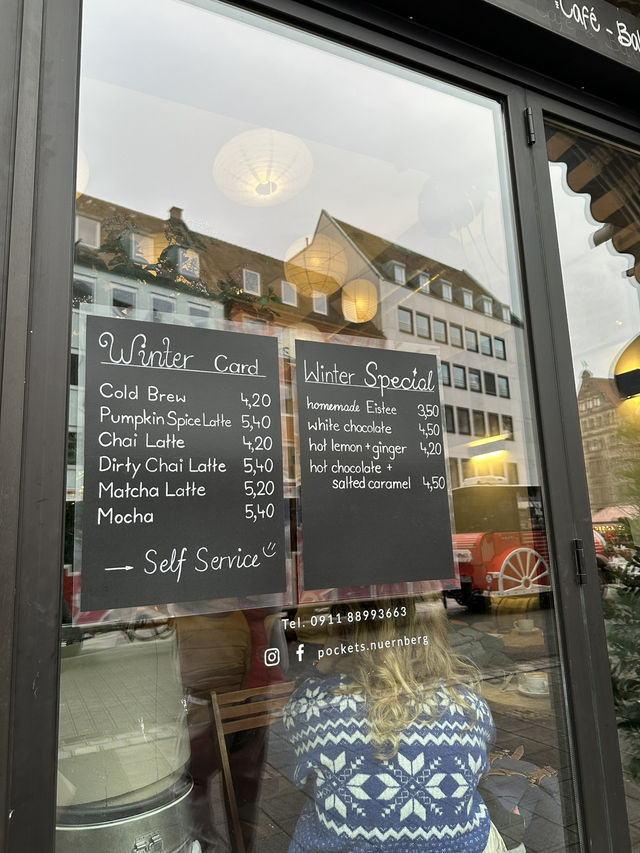 Café - Bak
Winter Card
Cold Brew 4,20
Pumpkin Spice Latte 5,40
Chai Latte 4,20
Dirty Chai Latte 5,40
Matcha Latte 5,20
Mocha 5,40
→ Self Service
Winter Special
homemade Eistee 3,50
white chocolate 4,50
hot lemon + ginger 4,20
hot chocolate +
salted caramel 4,50
Tel. 0911 88993663
pockets.nuernberg